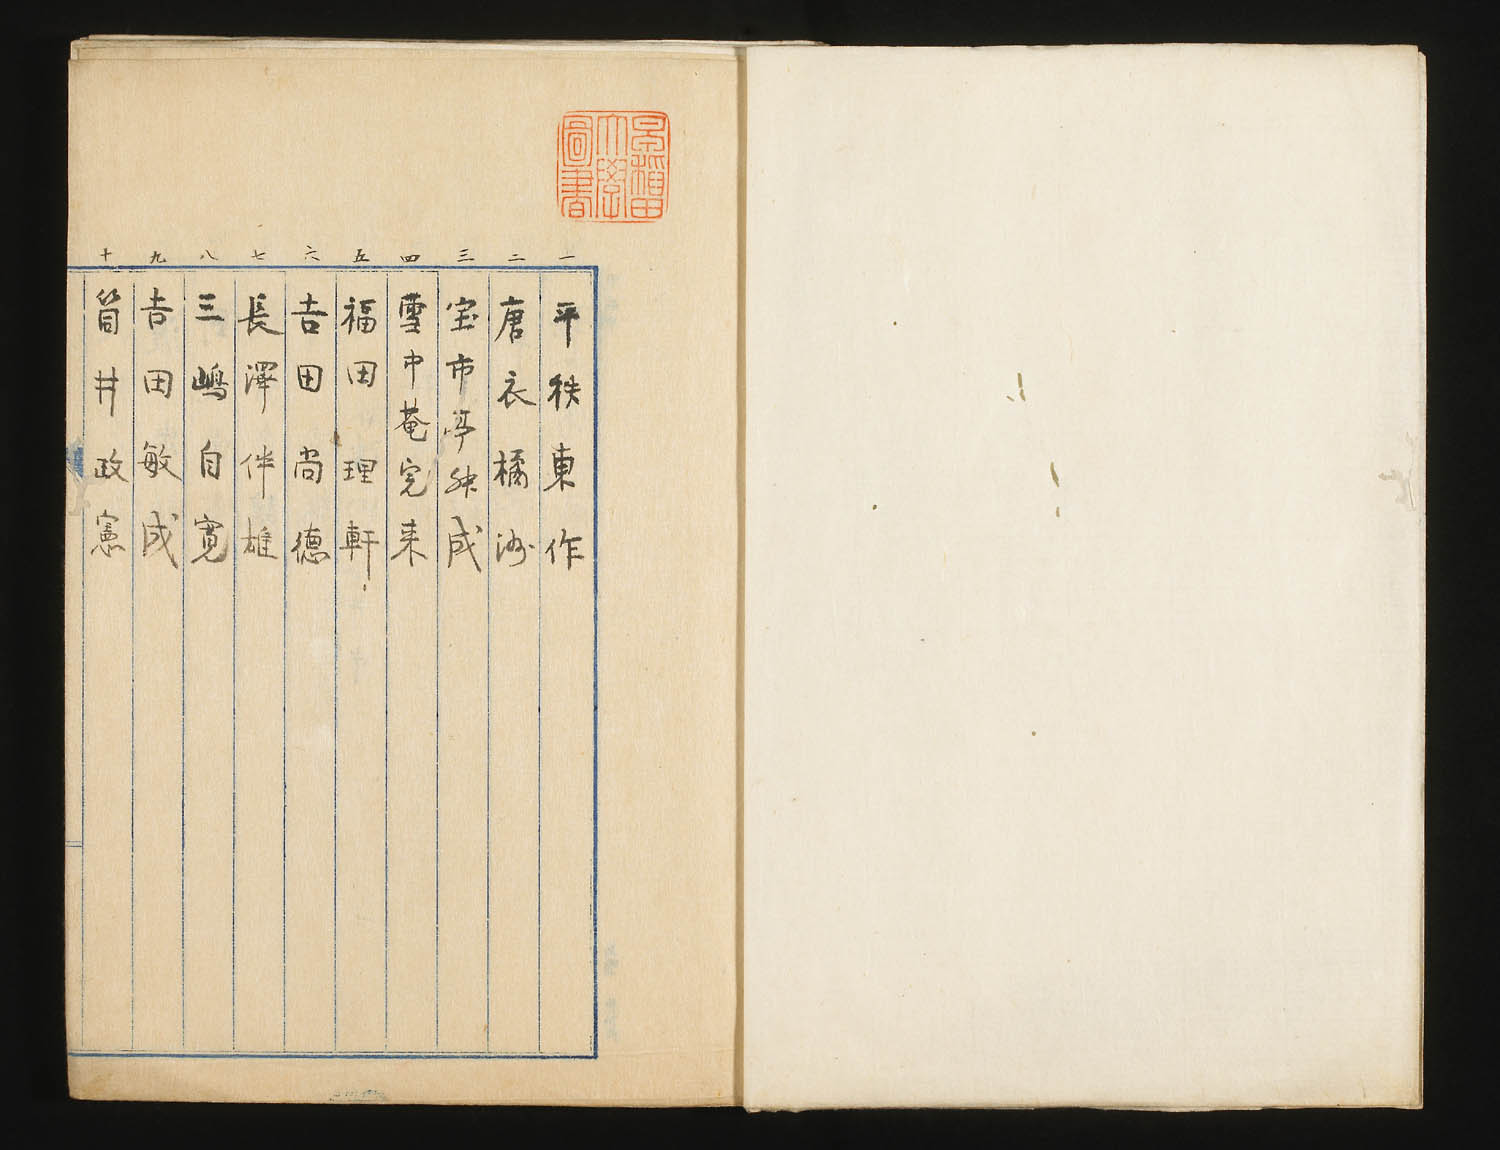 早稲田
大學
圖書
一
平秩東作
二
唐衣橘洲
三
宝市亭升成
四
雪中菴完来
五
福田理軒
六
吉田尚德
七
長澤伴雄
八
三嶋自寛
九
吉田敏成
十
筒井政憲